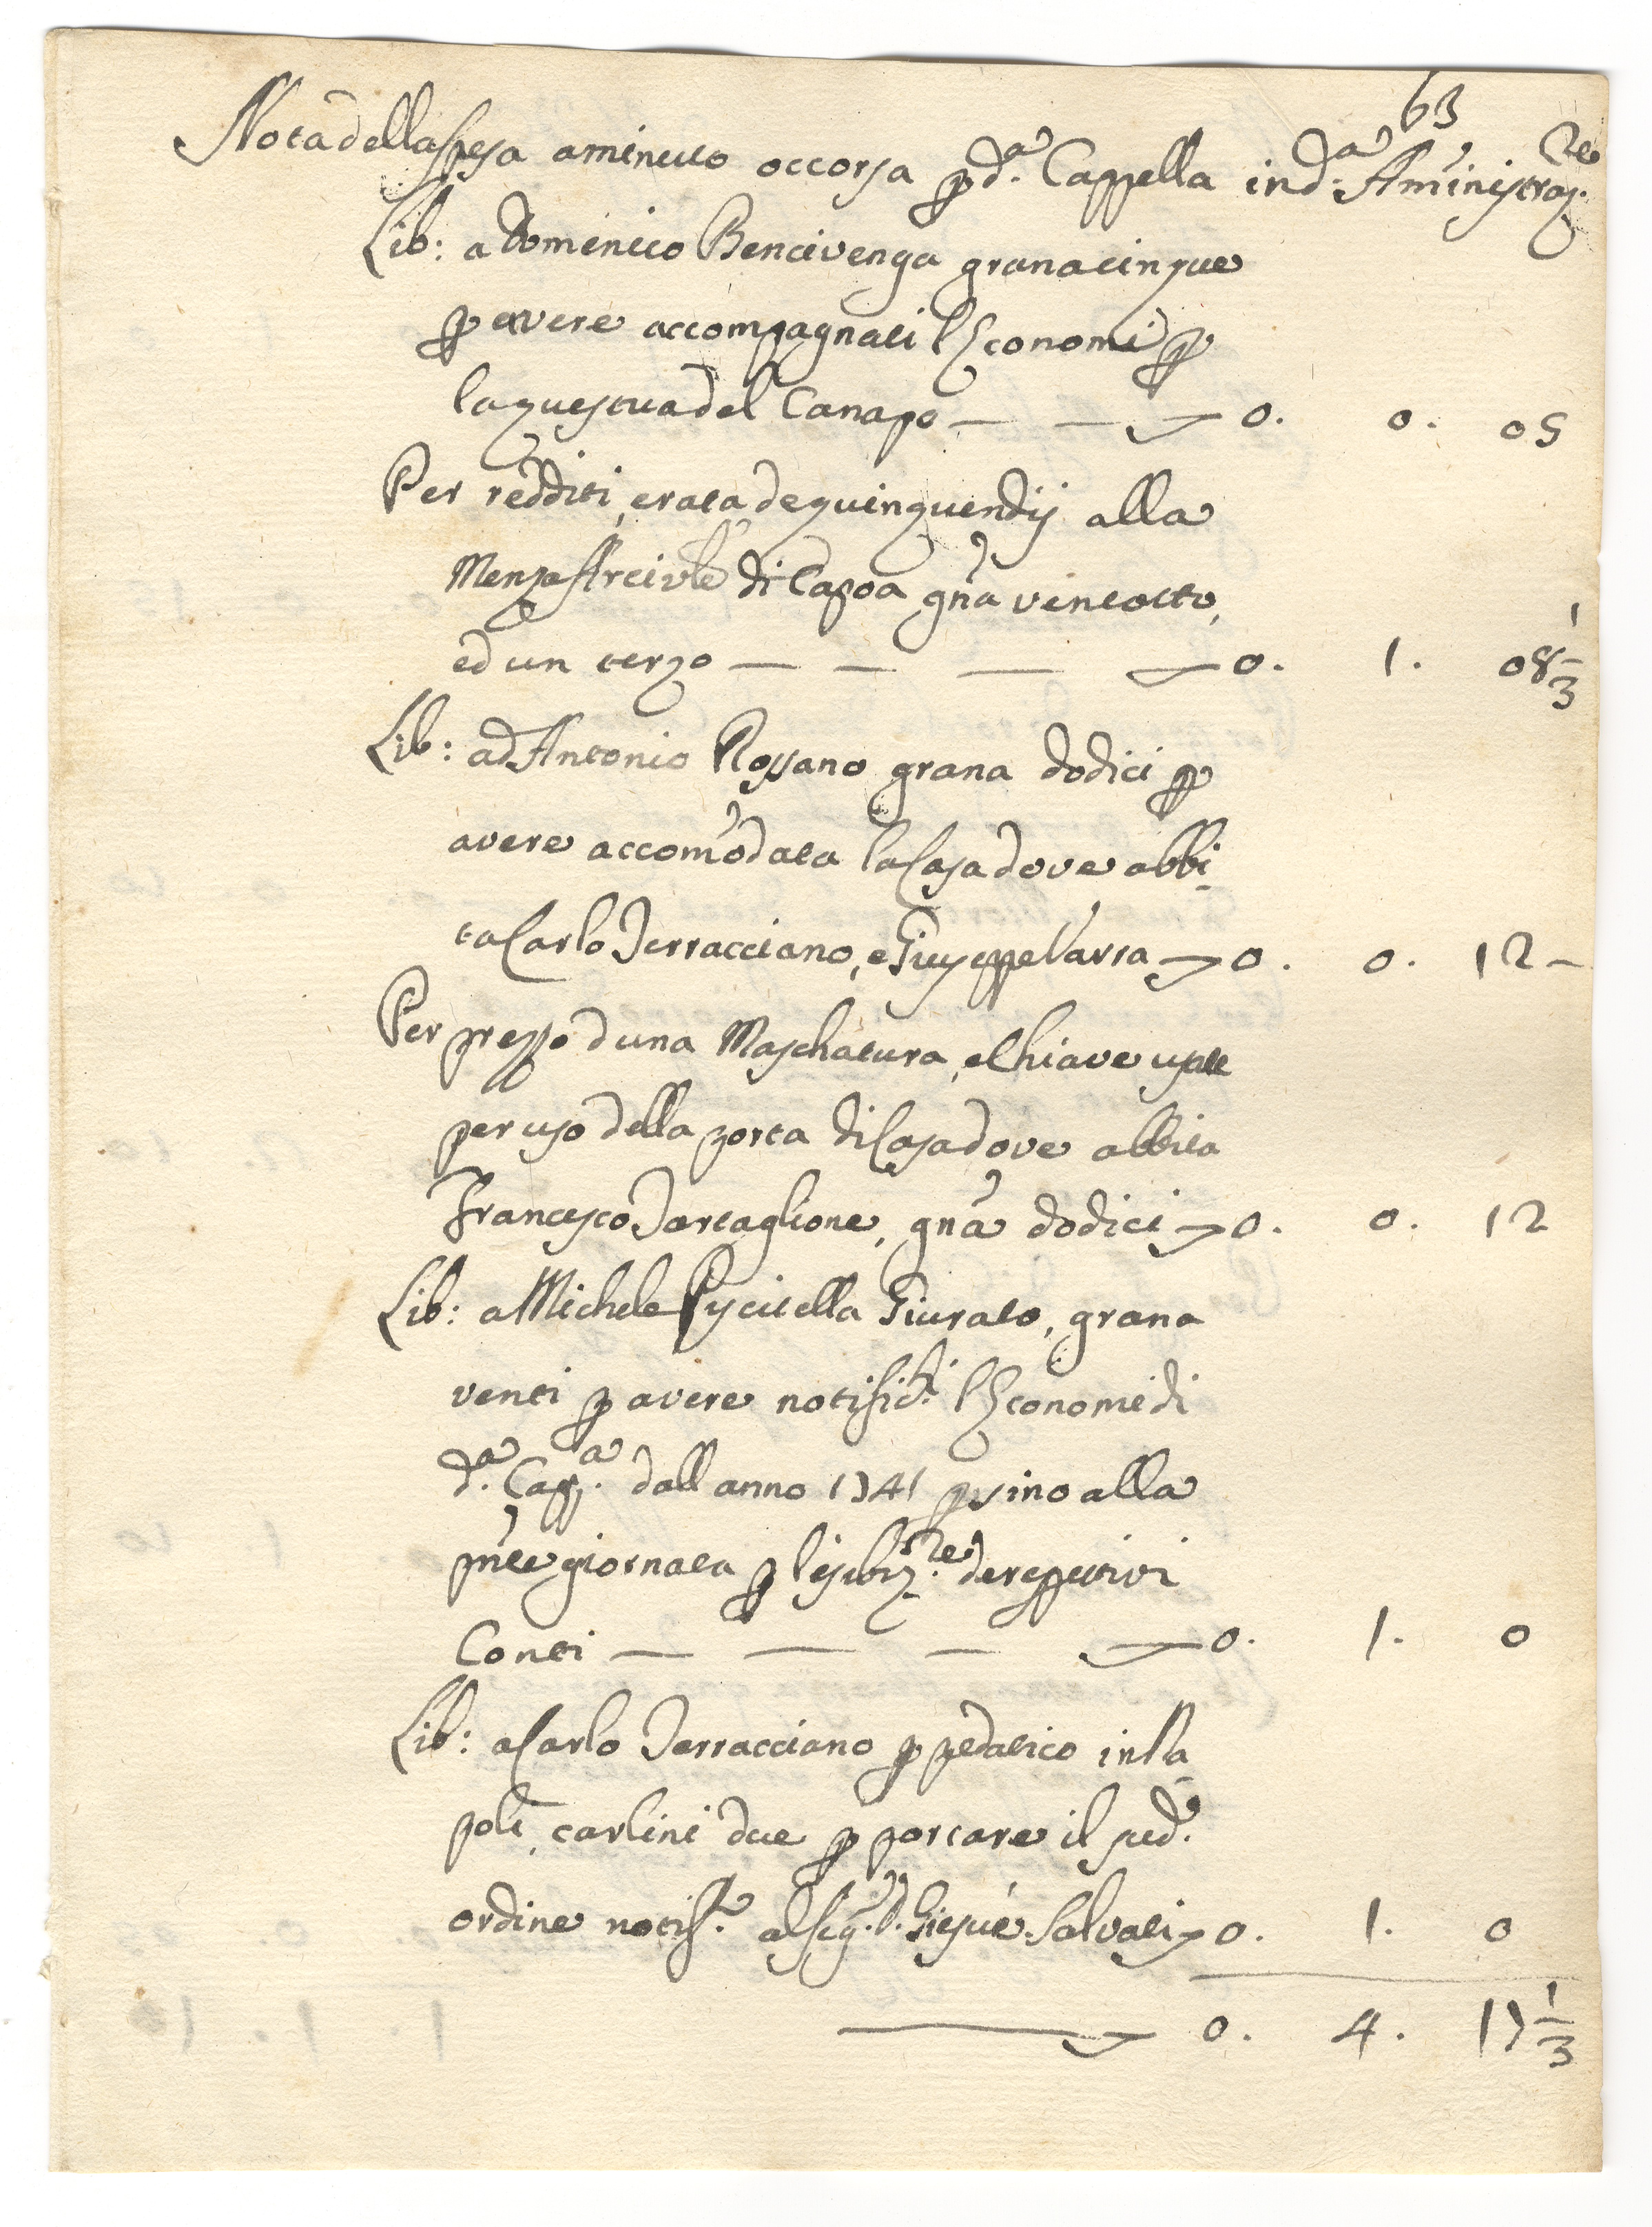 63
Nota della spesa a minuto occorsa p d.ª Cappella in d.ª Aministraz.ne
Lib: a Domenico Bencivenga grana cinque
p avere accompagnati l'Economi p
la questua del Canapo — — 0. 0. 05
Per redditi, e rata de quinquendij alla
Menza Arcivle di Capoa gna vent'otto,
ed un terzo — — — 0. 1. 08 1/3
Lib: ad Antonio Rossano grana dodici p
avere accomodata la Casa dove abbi-
ta Carlo Terracciano, e Giuseppe Varra 0. 0. 12 -
Per prezzo d'una Maschatura, e Chiave usate
per uso della porta di Casa dove abbita
Francesco Tartaglione, gna dodici 0. 0. 12
Lib: a Michele Piscitella Giurato, grana
venti p avere notific.ti l'Economi di
d.ª Capp.ª dall'anno 1741 p sino alla
pnte giornata p l'esibiz.ne de respettivi
Conti — — — 0. 1. 0
Lib: a Carlo Terracciano p pedatico in Na-
poli, carlini due p portare il sud.º
ordine notif.to al Sig.r D. Giesuè Salvati 0. 1. 0
0. 4. 17 1/3